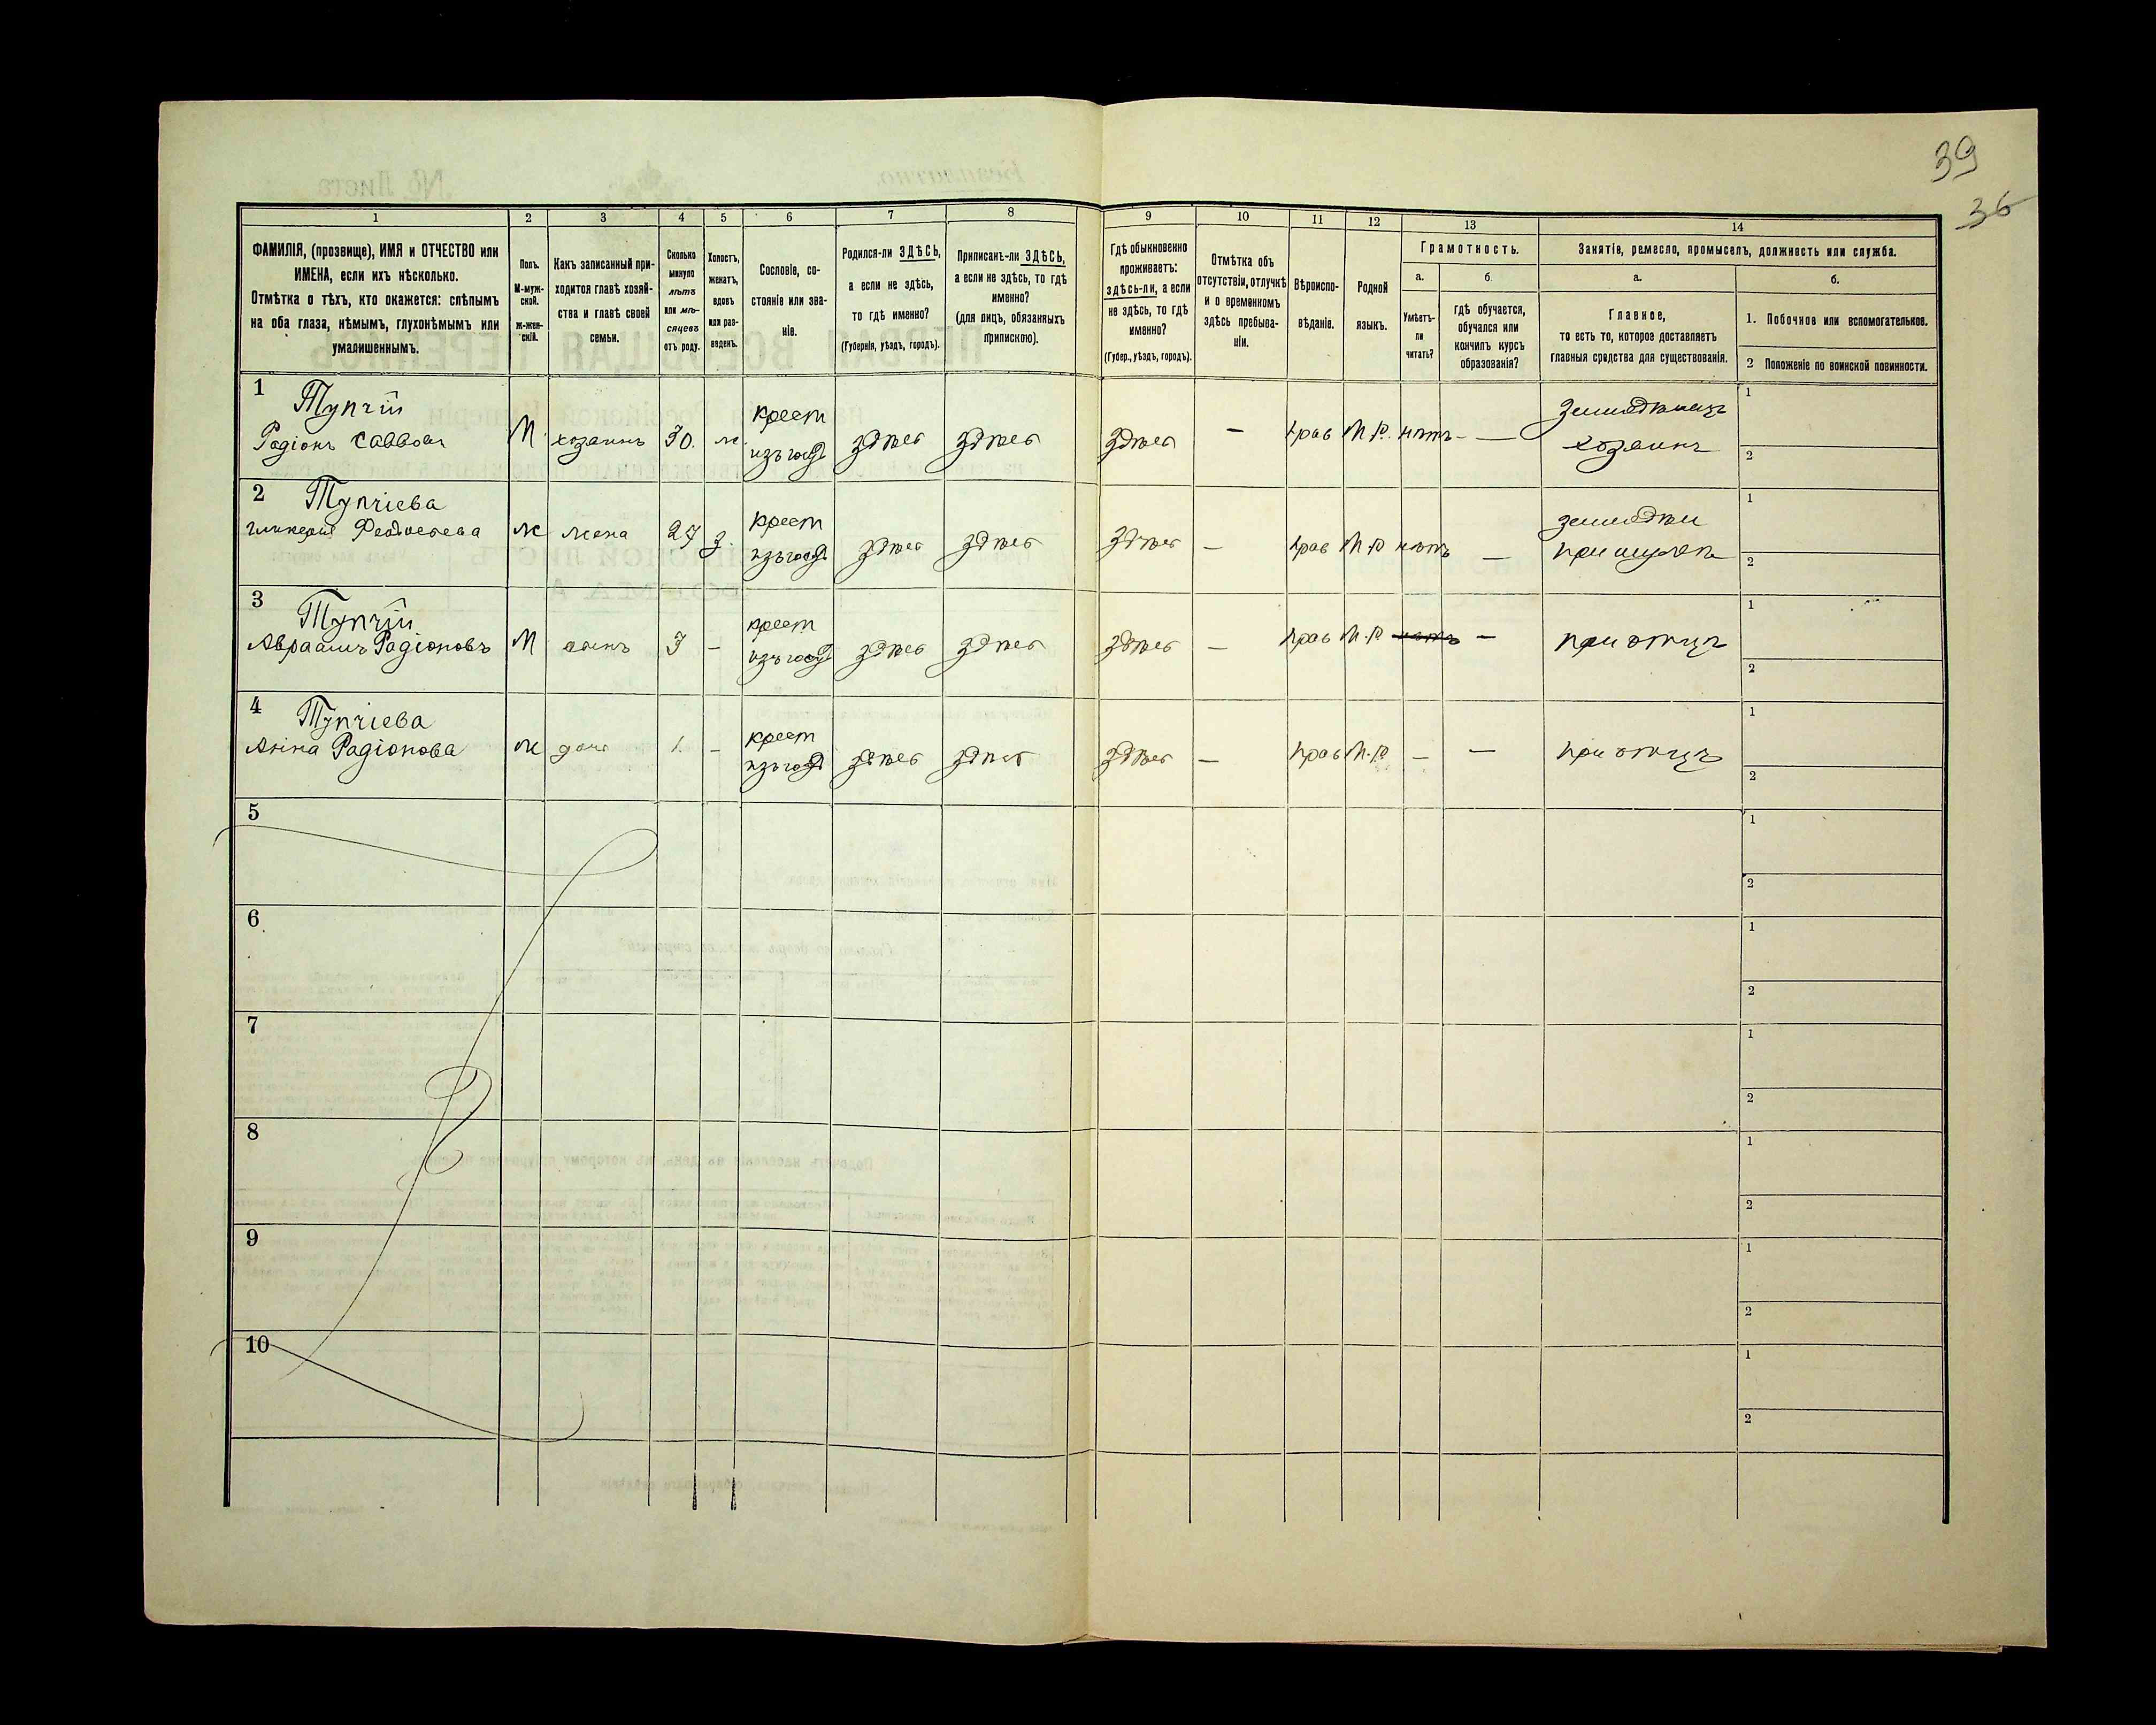 39
36
1
2
3
4
5
6
7
8
9
10
11
12
13
14
ФАМИЛІЯ, (прозвище), ИМЯ и ОТЧЕСТВО или
ИМЕНА, если ихъ нѣсколько.
Отмѣтка о тѣхъ, кто окажется: слѣпымъ
на оба глаза, нѣмымъ, глухонѣмымъ или
умалишеннымъ.
Полъ.
М-муж-
ской.
ж-жен-
скій.
Какъ записанный при-
ходится главѣ хозяй-
ства и главѣ своей
семьи.
Сколько
минуло
лѣтъ
или мѣ-
сяцевъ
отъ роду.
Холостъ,
женатъ,
вдовъ
или раз-
веденъ.
Сословіе, со-
стояніе или зва-
ніе.
Родился-ли ЗДѢСЬ,
а если не здѣсь,
то гдѣ именно?
(Губернія, уѣздъ, городъ).
Приписанъ-ли ЗДѢСЬ,
а если не здѣсь, то гдѣ
именно?
(для лицъ, обязанныхъ
припискою).
Гдѣ обыкновенно
проживаетъ:
здѣсь-ли, а если
не здѣсь, то гдѣ
именно?
(Губер., уѣздъ, городъ).
Отмѣтка объ
отсутствіи, отлучкѣ
и о временномъ
здѣсь пребыва-
ніи.
Вѣроиспо-
вѣданіе.
Родной
языкъ.
Грамотность.
а.
б.
Умѣетъ-
ли
читать?
гдѣ обучается,
обучался или
кончилъ курсъ
образованія?
Занятіе, ремесло, промыселъ, должность или служба.
а.
б.
Главное,
то есть то, которое доставляетъ
главныя средства для существованія.
1. Побочное или вспомогательное.
2 Положеніе по воинской повинности.
1
Тупчій
Радіонъ Саввовъ
М
хозяинъ
30.
ж.
крест
изъ госуд
здѣсь
здѣсь
здѣсь
—
прав
М.Р.
нѣтъ
—
хозяинъ
1
2
2
Тупчіева
Гликерія
ж
жена
27
з.
крест
изъ госуд
здѣсь
здѣсь
здѣсь
—
прав
М.Р
нѣтъ
—
при мужѣ
1
2
3
Тупчій
Авраамъ Радіоновъ
М
сынъ
3
—
крест
изъ госуд
здѣсь
здѣсь
здѣсь
—
прав
М.Р
нѣтъ
—
при отцѣ
1
2
4
Тупчіева
Анна Радіонова
ж
дочь
1.
—
крест
изъ госуд
здѣсь
здѣсь
здѣсь
—
прав
М.Р
—
—
при отцѣ
1
2
5
1
2
6
1
2
7
1
2
8
1
2
9
1
2
10
1
2